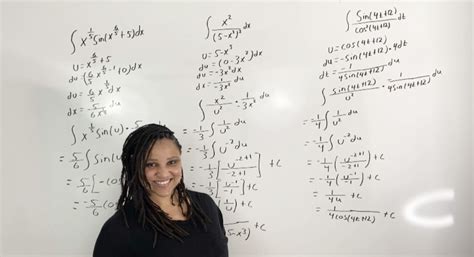 ∫ x^(1/5) Sin(x^(6/5) + 5) dx
u = x^(6/5) + 5
dx = 5/(6x^(1/5)) du
= 5/6 ∫ Sin(u)
= 5/6 [-co
∫ x²/(5-x³)² dx
u = 5-x³
du = (0-3x²) dx
du = -3x² dx
∫ x²/u² · 1/-3x² du
-1/3 ∫ 1/u² du
-1/3 ∫ u^-2 du
= -1/3 [u^(-2+1)/(-2+1)] + C
+ C
∫ Sin(4t+12)/cos²(4t+12) dt
u = cos(4t+12)
du = -Sin(4t+12) · 4dt
dt = -1/(4Sin(4t+12)) du
∫ Sin(4t+12)/u² · -1/(4Sin(4t+12)) du
= -1/4 ∫ 1/u² du
= -1/4 ∫ u^-2 du
= -1/4 (u^(-2+1)/(-2+1)) + C
= -1/4 (u^-1/-1) + C
= 1/4u + C
= 1/(4cos(4t+12)) + C